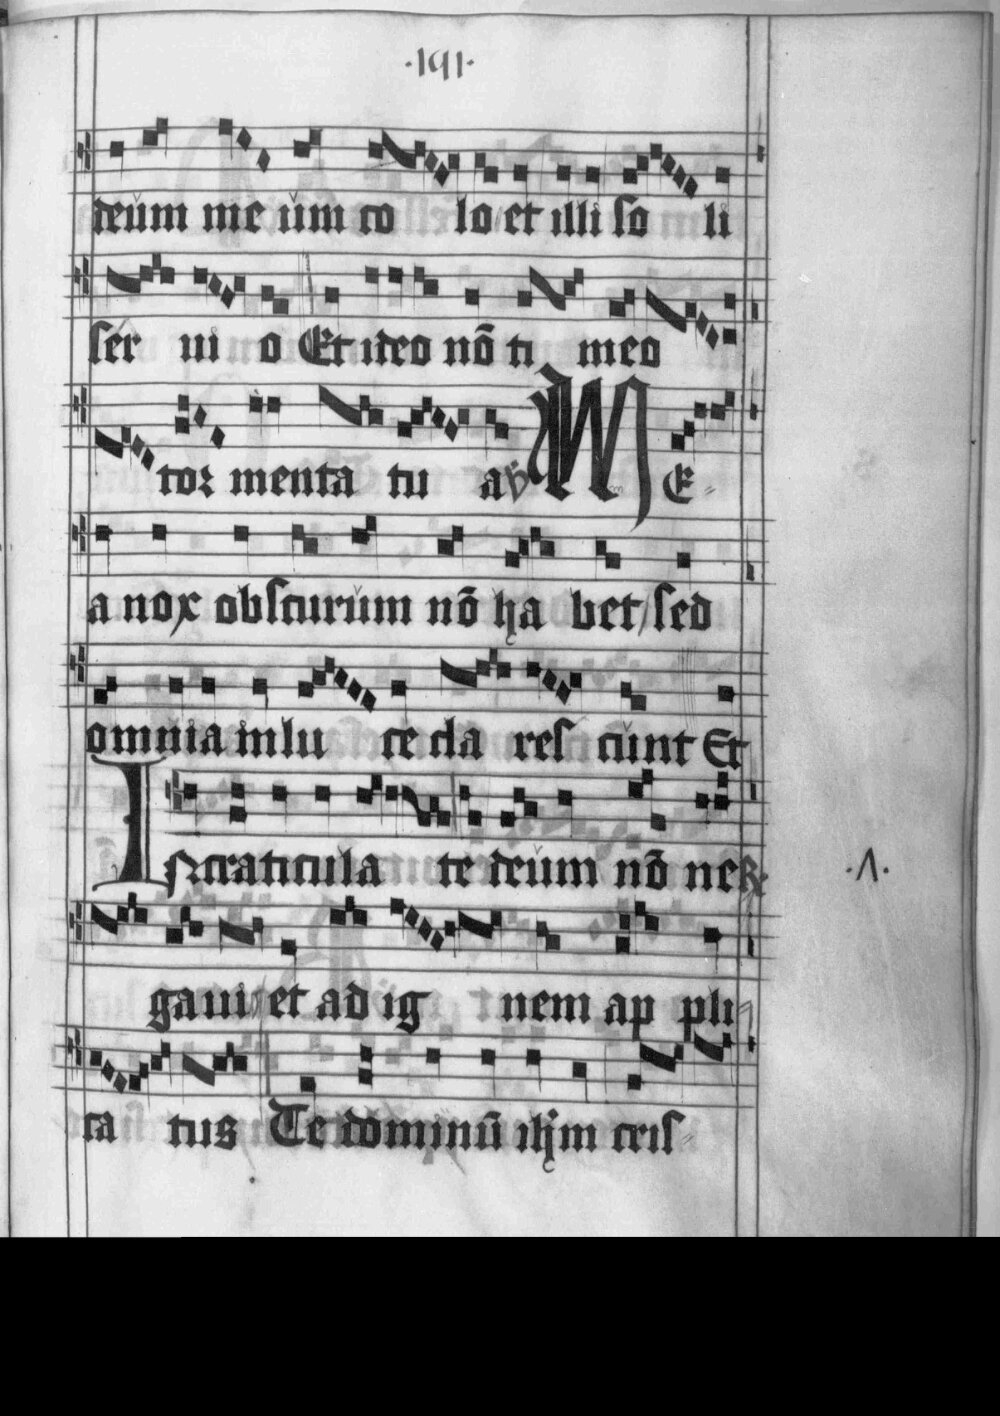 ·191·
deum me um co lo et illi so li
ser ui o Et ideo nō ti meo
tor menta tu a v̄ ME
a nox obscurum nō ha bet / sed
omnia in lu ce cla res cunt Et
IN craticula te deum nō ne R
gaui et ad ig nem ap pli
ca tus Te dominū ihm cris